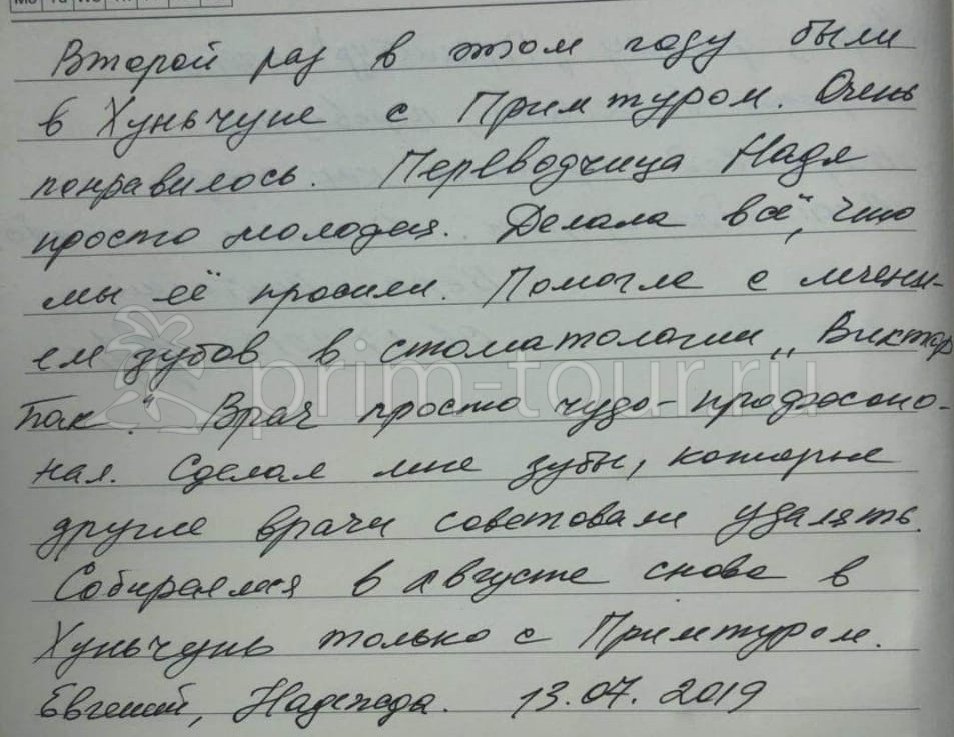 Второй раз в этом году были
в Хуньчуне с Примтуром. Очень
понравилось. Переводчица Надя
просто молодец. Делала всё, что
мы её просили. Помогла с лечени-
ем зубов в стоматологии „Виктор
Пак“. Врач просто чудо-професси-
нал. Сделал мне зубы, которые
другие врачи советовали удалять.
Собираемся в августе снова в
Хуньчунь только с Примтуром.
Евгений, Надежда. 13.07.2019
prim-tour.ru